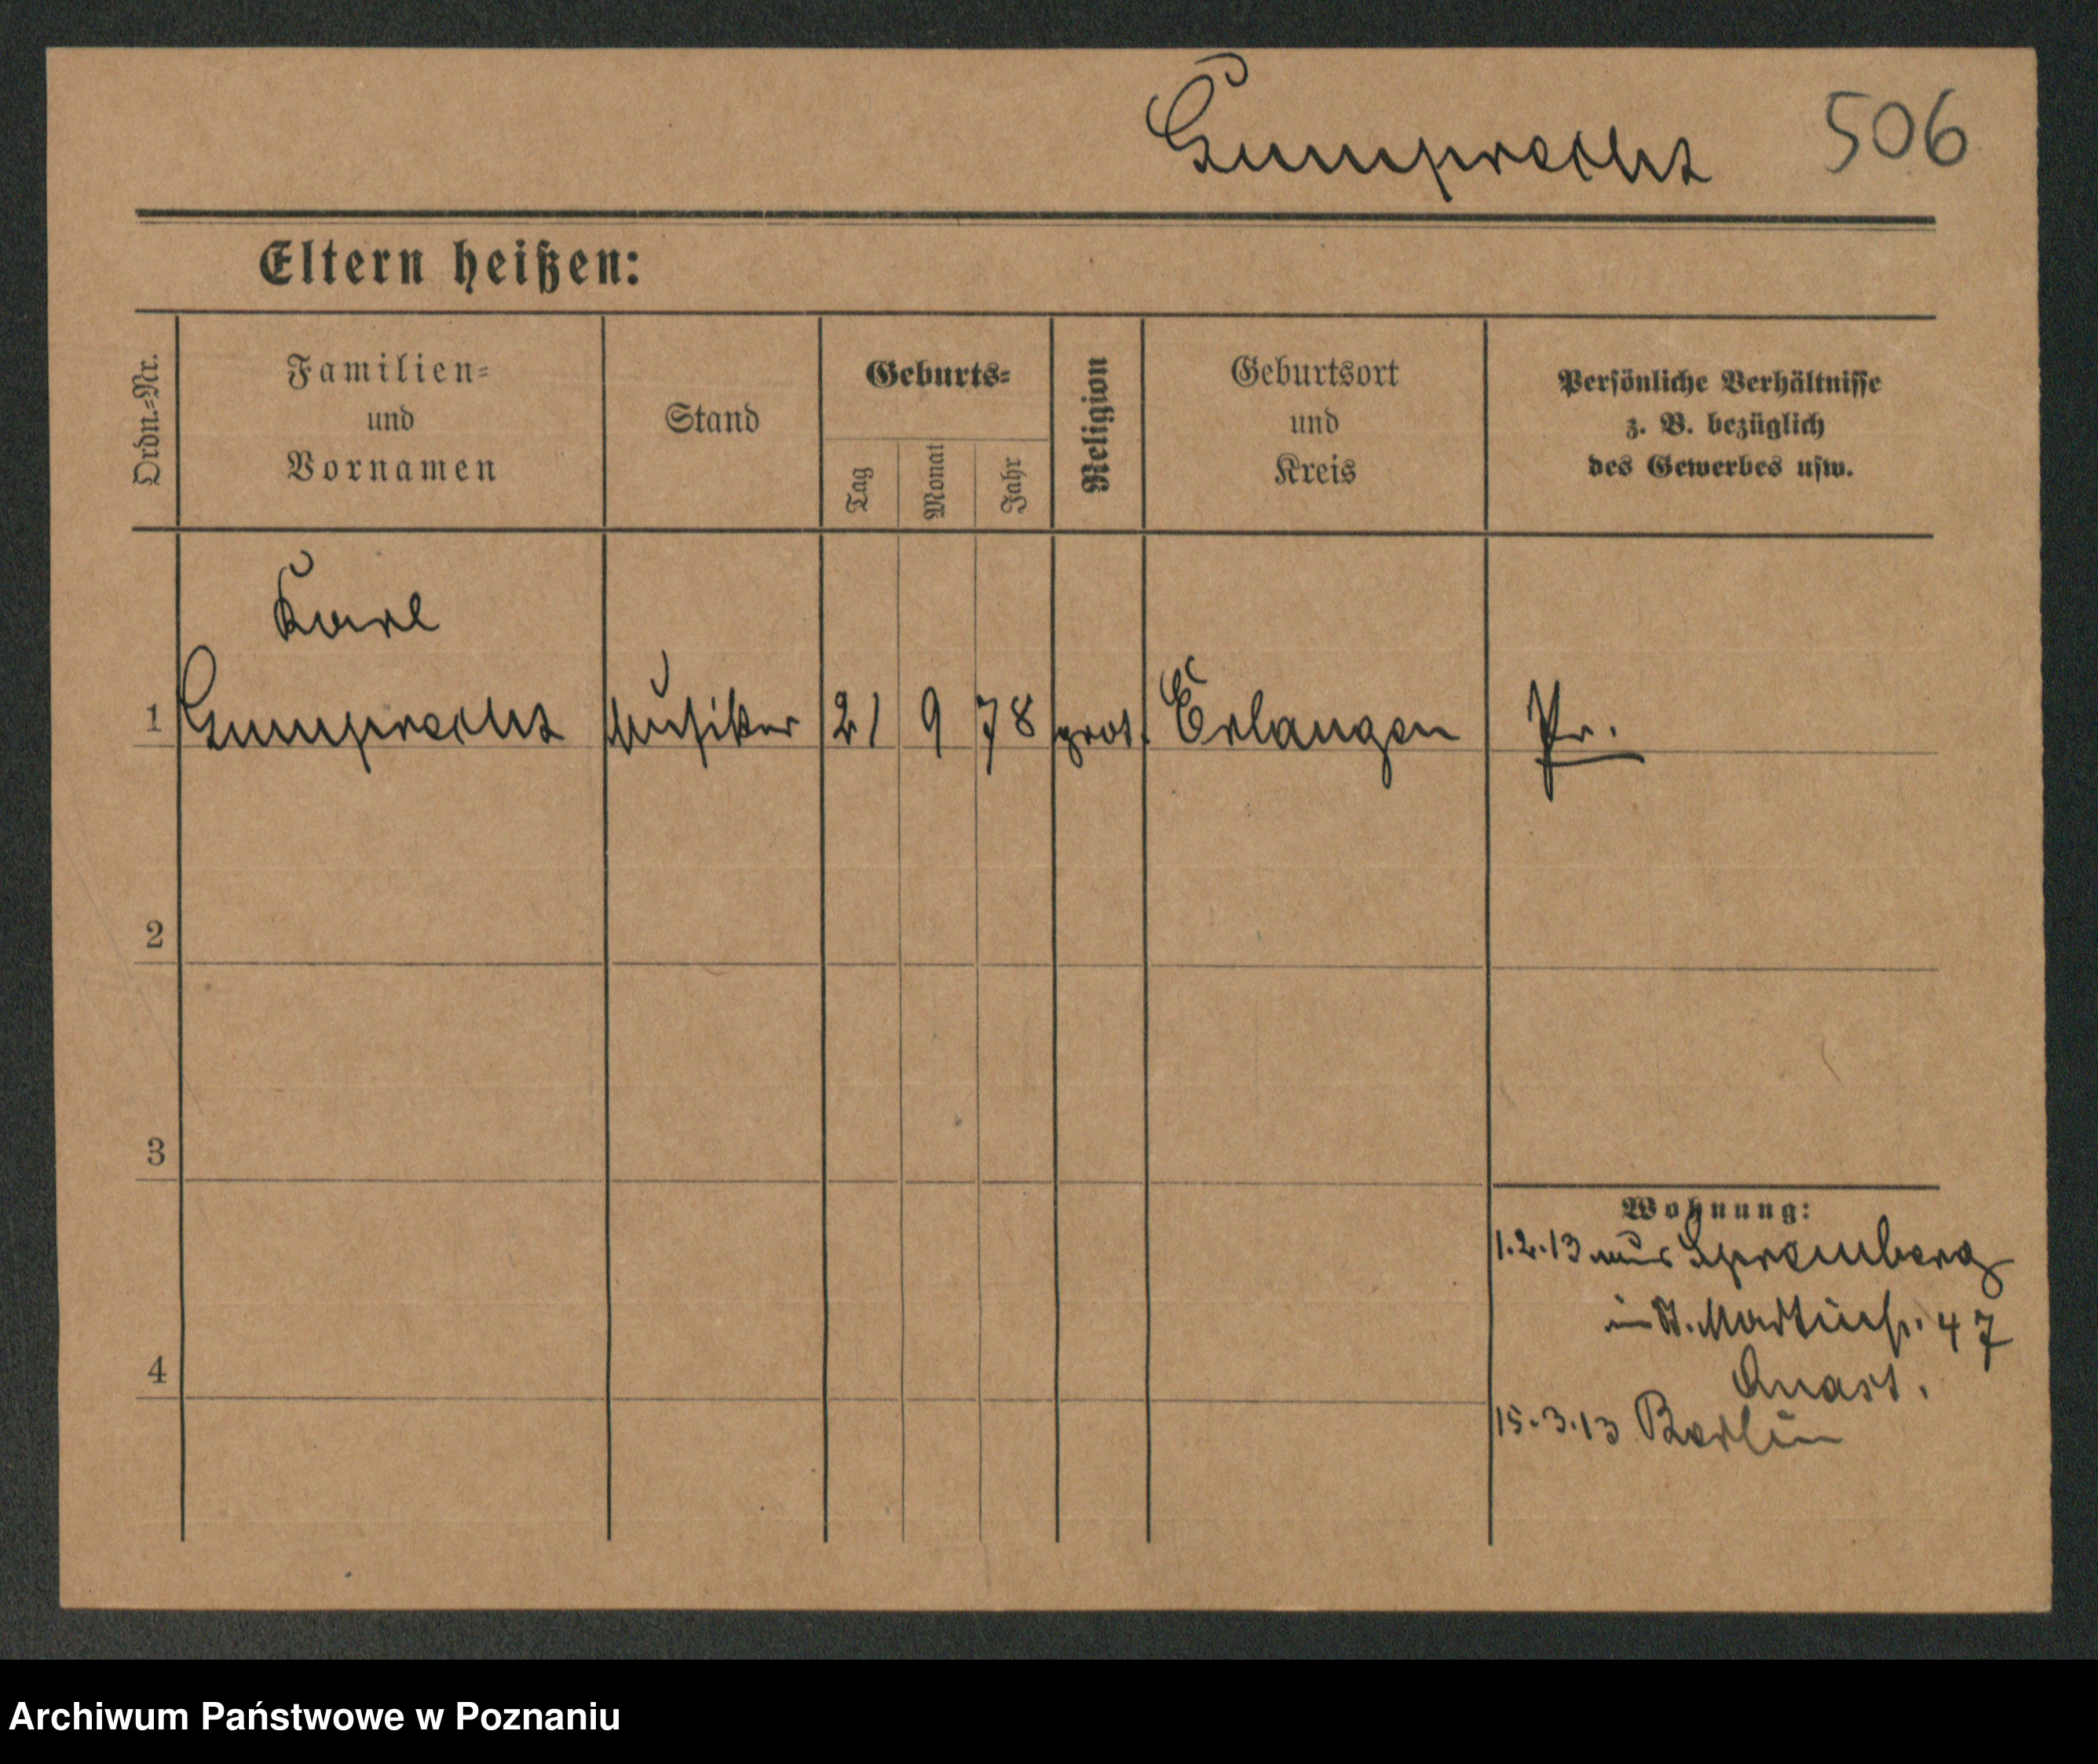 Gumprecht 506
Eltern heißen:
Ordn.-Nr.
Familien-
und
Vornamen
Stand
Geburts-
Tag
Monat
Jahr
Religion
Geburtsort
und
Kreis
Persönliche Verhältnisse
z. B. bezüglich
des Gewerbes usw.
Karl
1 Gumprecht Musiker 21 9 78 prot. Erlangen Pr.
2
3
4
Wohnung:
1.2.13 aus Spremberg
in St. Martinstr. 47
15.3.13 Berlin
Archiwum Państwowe w Poznaniu